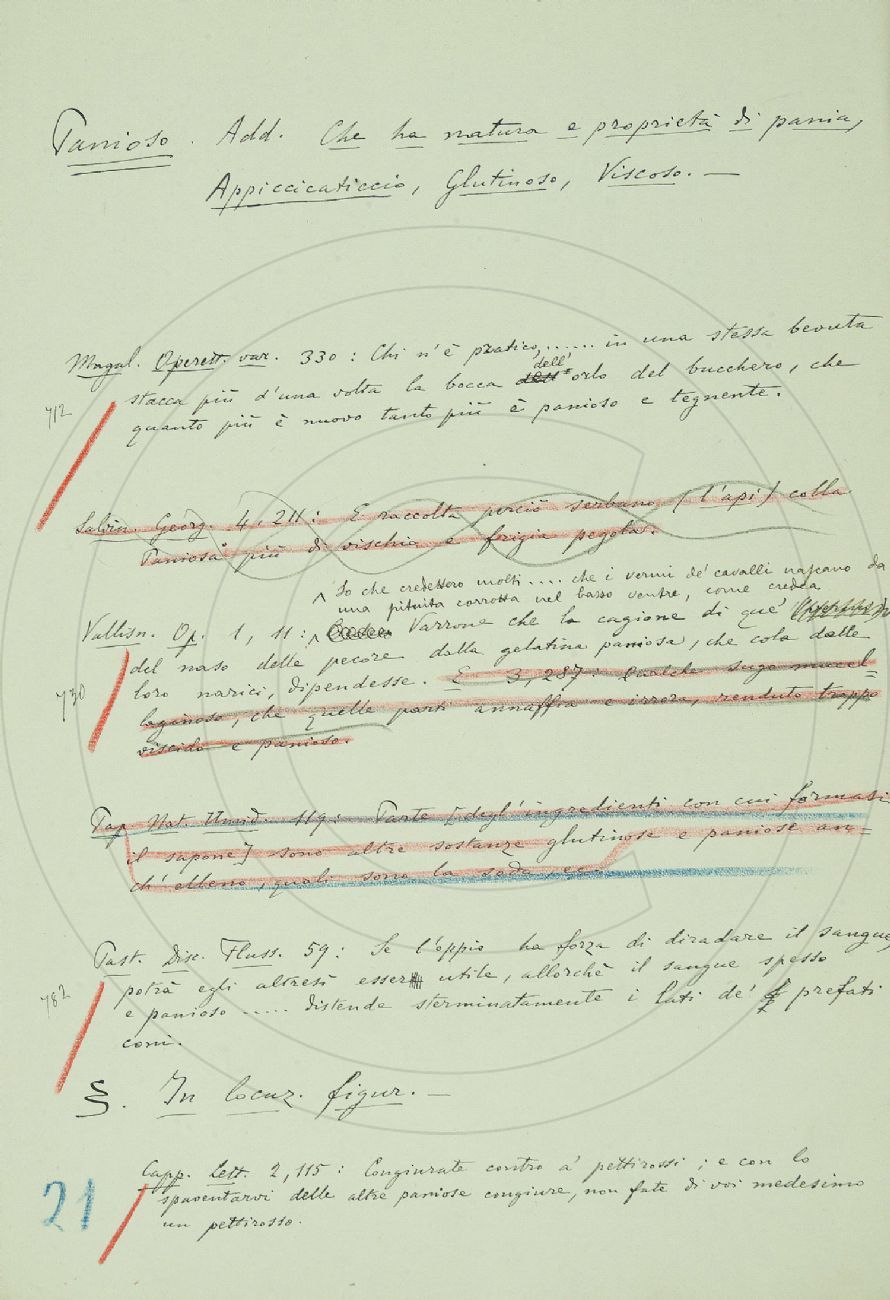 Panioso. Add. Che ha natura e proprietà di pania,
Appiccicaticcio, Glutinoso, Viscoso. —
Magal. Operett. var. 330: Chi n'è pratico, ...... in una stessa bevuta
stacca più d'una volta la bocca dell' orlo del bucchero, che
quanto più è nuovo tanto più è panioso e tegnente.
712
Salvin. Georg. 4. 211: E raccolta perciò serbano (l'api) colla
Paniosa più di vischio e frigia pegola.
So che credettero molti .... che i vermi de' cavalli nascano da
una pituita corrotta nel basso ventre, come credea
Vallisn. Op. 1, 11: Varrone che la cagione di que'
del naso delle pecore dalla gelatina paniosa, che cola dalle
loro narici, dipendesse. E 3, 287: Qualche sugo mucel=
laginoso, che quelle parti annaffia e irrora, renduto troppo
viscido e panioso.
730
Pap. Nat. Umid. 119: Parte [degl'ingredienti con cui formasi
il sapone] sono altre sostanze glutinose e paniose an=
ch'elleno, quali sono la soda, ec.
Past. Disc. Fluss. 59: Se l'oppio ha forza di diradare il sangue,
potrà egli altresì esser utile, allorchè il sangue spesso
e panioso ..... distende sterminatamente i lati de' prefati
coni.
782
§. In locuz. figur. —
Capp. Lett. 2, 115: Congiurate contro a' pettirossi; e con lo
spaventarvi delle altre paniose congiure, non fate di voi medesimo
un pettirosso.
21